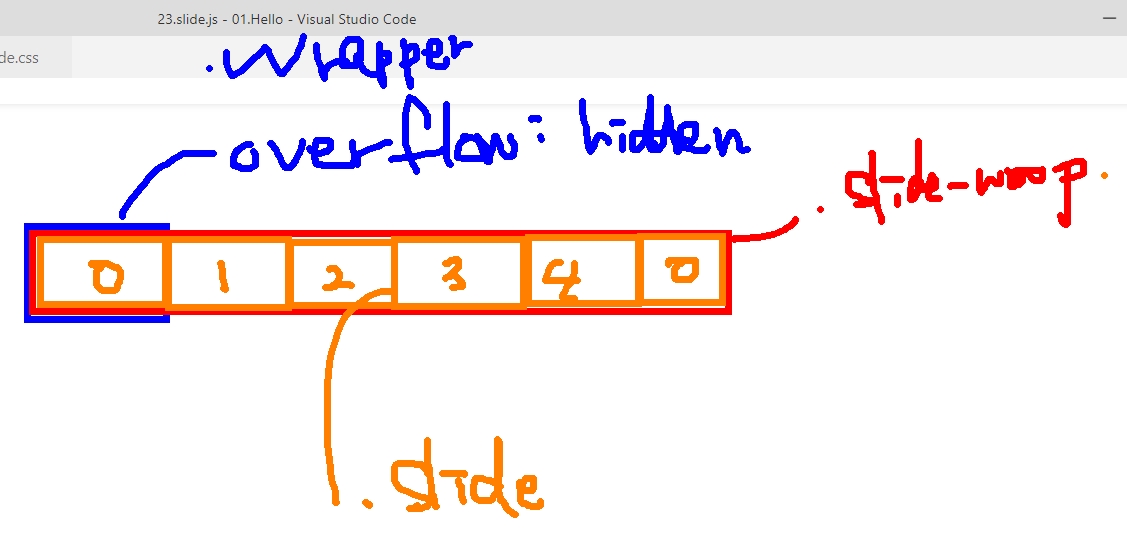 23.slide.js - 01.Hello - Visual Studio Code
de.css
.wrapper
overflow: hidden
.slide-wrap.
0 1 2 3 4 0
.slide